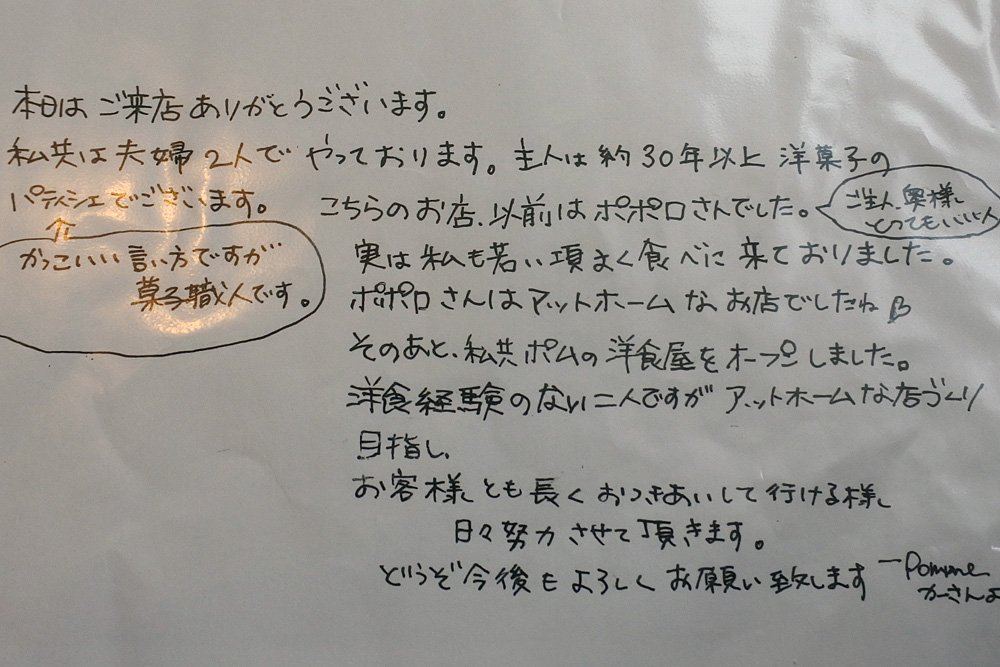 本日はご来店ありがとうございます。
私共は夫婦2人でやっております。主人は約30年以上洋菓子の
パティシエでございます。
かっこいい言い方ですが
菓子職人です。
こちらのお店、以前はポポロさんでした。
ご主人、奥様、
とってもいい人
実は私も若い項よく食べに来ておりました。
ポポロさんはアットホームなお店でしたね
そのあと、私共ポムの洋食屋をオープンしました。
洋食経験のない二人ですがアットホームな店づくり
目指し、
お客様とも長くおつきあいして行ける様、
日々努力させて頂きます。
どうぞ今後もよろしくお願い致します
ーPomme
かーさんよ